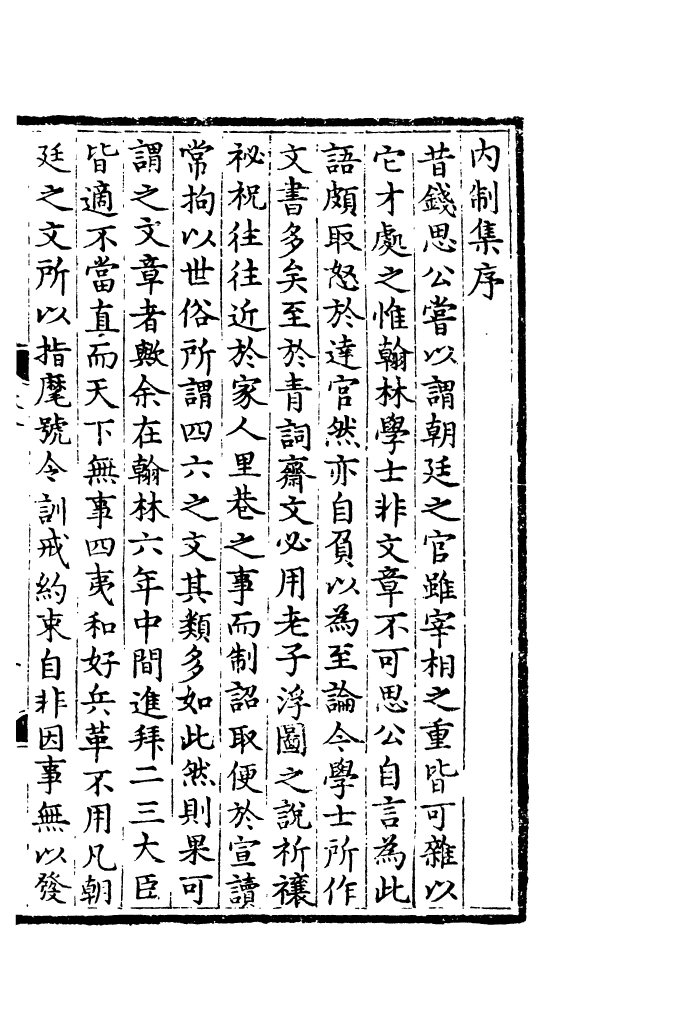 內制集序
昔錢思公嘗以謂朝廷之官雖宰相之重皆可雜以
它才處之惟翰林學士非文章不可思公自言為此
語頗取怒於達官然亦自負以為至論今學士所作
文書多矣至於青詞齋文必用老子浮圖之說祈禳
祕祝往往近於家人里巷之事而制詔取便於宣讀
常拘以世俗所謂四六之文其類多如此然則果可
謂之文章者歟余在翰林六年中間進拜二三大臣
皆適不當直而天下無事四夷和好兵革不用凡朝
廷之文所以指麾號令訓戒約束自非因事無以發